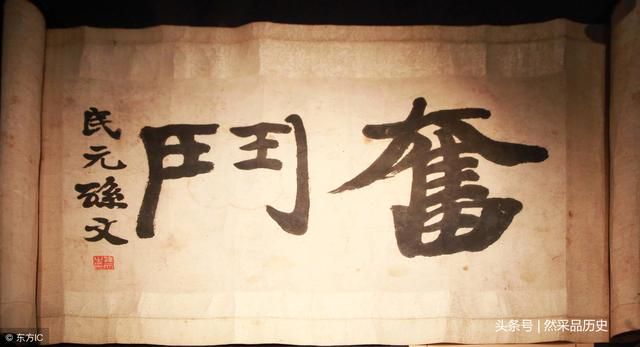 奮鬥
民元孫文
© 东方IC
头条号 | 然采品历史